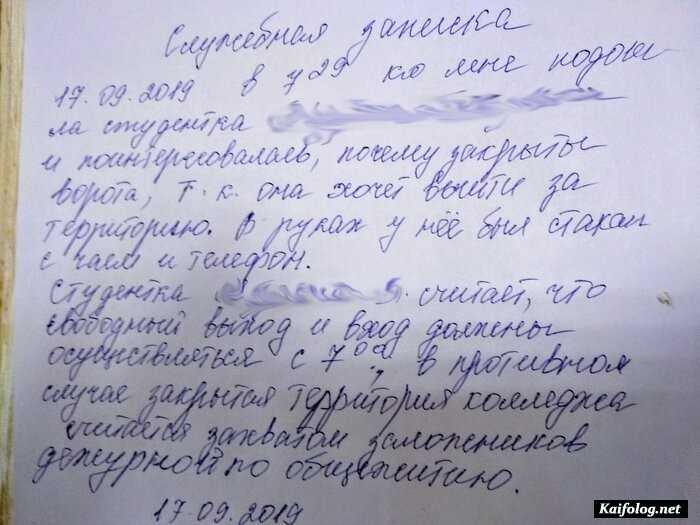 Служебная записка
17.09.2019 в 7 29 ко мне подош
ла студентка
и поинтересовалась, почему закрыты
ворота, т.к. она хочет выйти за
территорию. В руках у неё был стакан
с чаем и телефон.
Студентка считает, что
свободный выход и вход должены
осуществляться с 7 00, в противном
случае закрытая территория колледжа
считается захватом заложников
дежурной по общежитию.
17.09.2019
Kaifolog.net